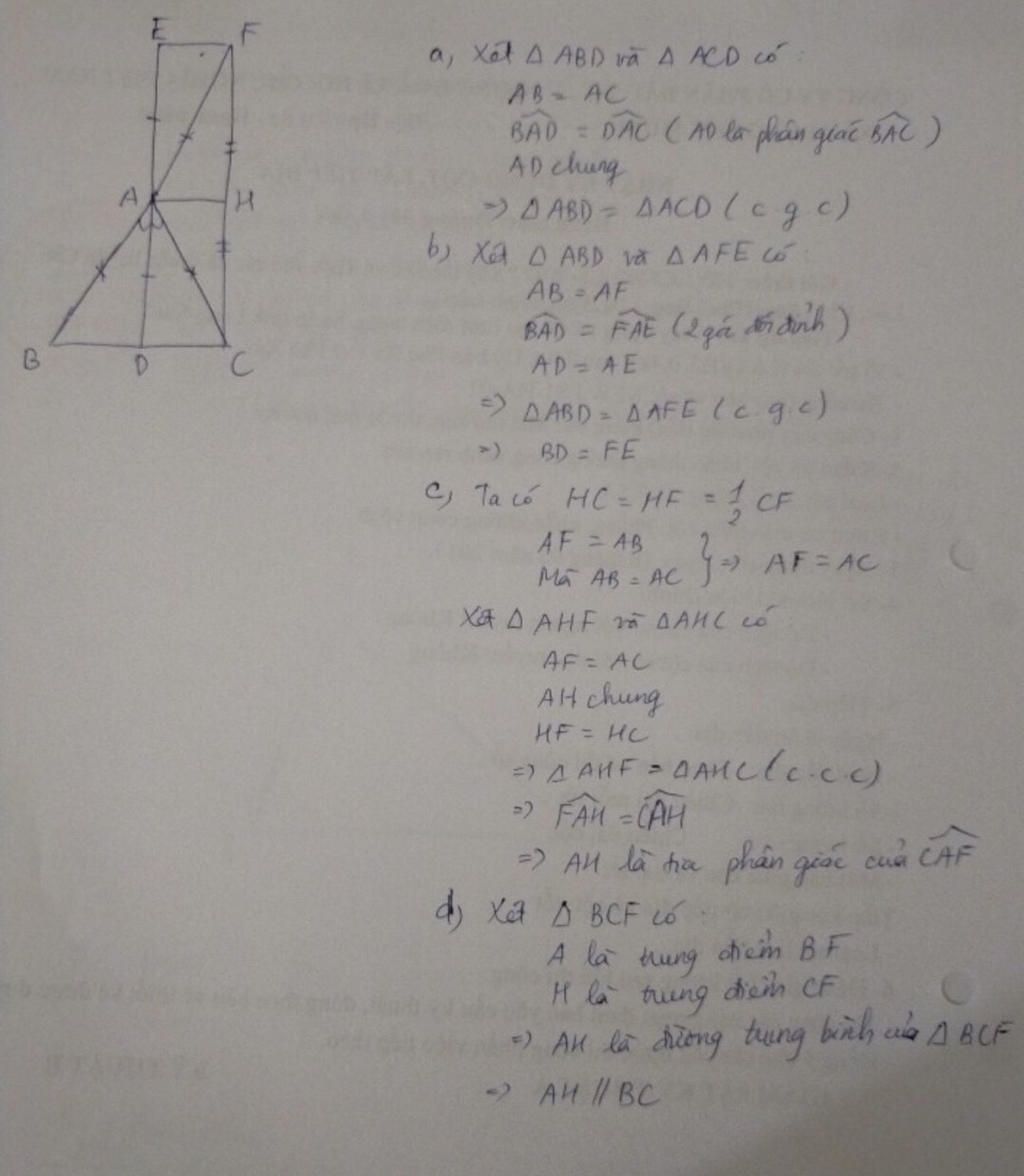 E F
A H
B D C
a, Xét Δ ABD và Δ ACD có :
AB = AC
BAD = DAC ( AD là phân giác BAC )
AD chung
=> Δ ABD = Δ ACD ( c g c )
b) Xét Δ ABD và Δ AFE có :
AB = AF
BAD = FAE ( 2 gá đối đỉnh )
AD = AE
=> Δ ABD = Δ AFE ( c . g . c )
=> BD = FE
c, Ta có HC = HF = 1/2 CF
AF = AB
Mà AB = AC } => AF = AC
Xét Δ AHF và Δ AHC có
AF = AC
AH chung
HF = HC
=> Δ AHF = Δ AHC ( c . c . c )
=> FAH = CAH
=> AH là tia phân giác của CAF
d) Xét Δ BCF có :
A là trung điểm BF
H là trung điểm CF
=> AH là đường trung bình của Δ BCF
=> AH // BC